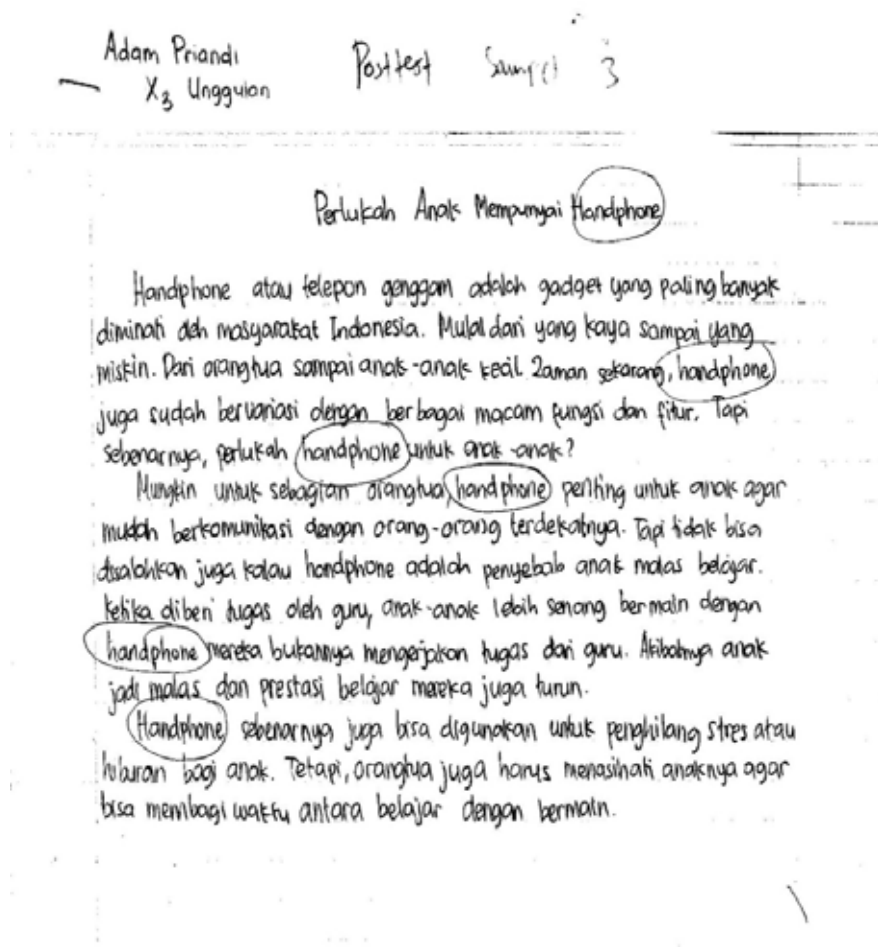 Adam Priandi
X3 Unggulan
Posttest Sampel 3
Perlukah Anak Mempunyai Handphone
Handphone atau telepon genggam adalah gadget yang paling banyak
diminati oleh masyarakat Indonesia. Mulai dari yang kaya sampai yang
miskin. Dari orangtua sampai anak-anak kecil. Zaman sekarang, handphone
juga sudah bervariasi dengan berbagai macam fungsi dan fitur. Tapi
sebenarnya, perlukah handphone untuk anak-anak?
Mungkin untuk sebagian orangtua, handphone penting untuk anak agar
mudah berkomunikasi dengan orang-orang terdekatnya. Tapi tidak bisa
disalahkan juga kalau handphone adalah penyebab anak malas belajar.
Ketika diberi tugas oleh guru, anak-anak lebih senang bermain dengan
handphone mereka bukannya mengerjakan tugas dari guru. Akibatnya anak
jadi malas dan prestasi belajar mereka juga turun.
Handphone sebenarnya juga bisa digunakan untuk penghilang stres atau
hiburan bagi anak. Tetapi, orangtua juga harus menasihati anaknya agar
bisa membagi waktu antara belajar dengan bermain.